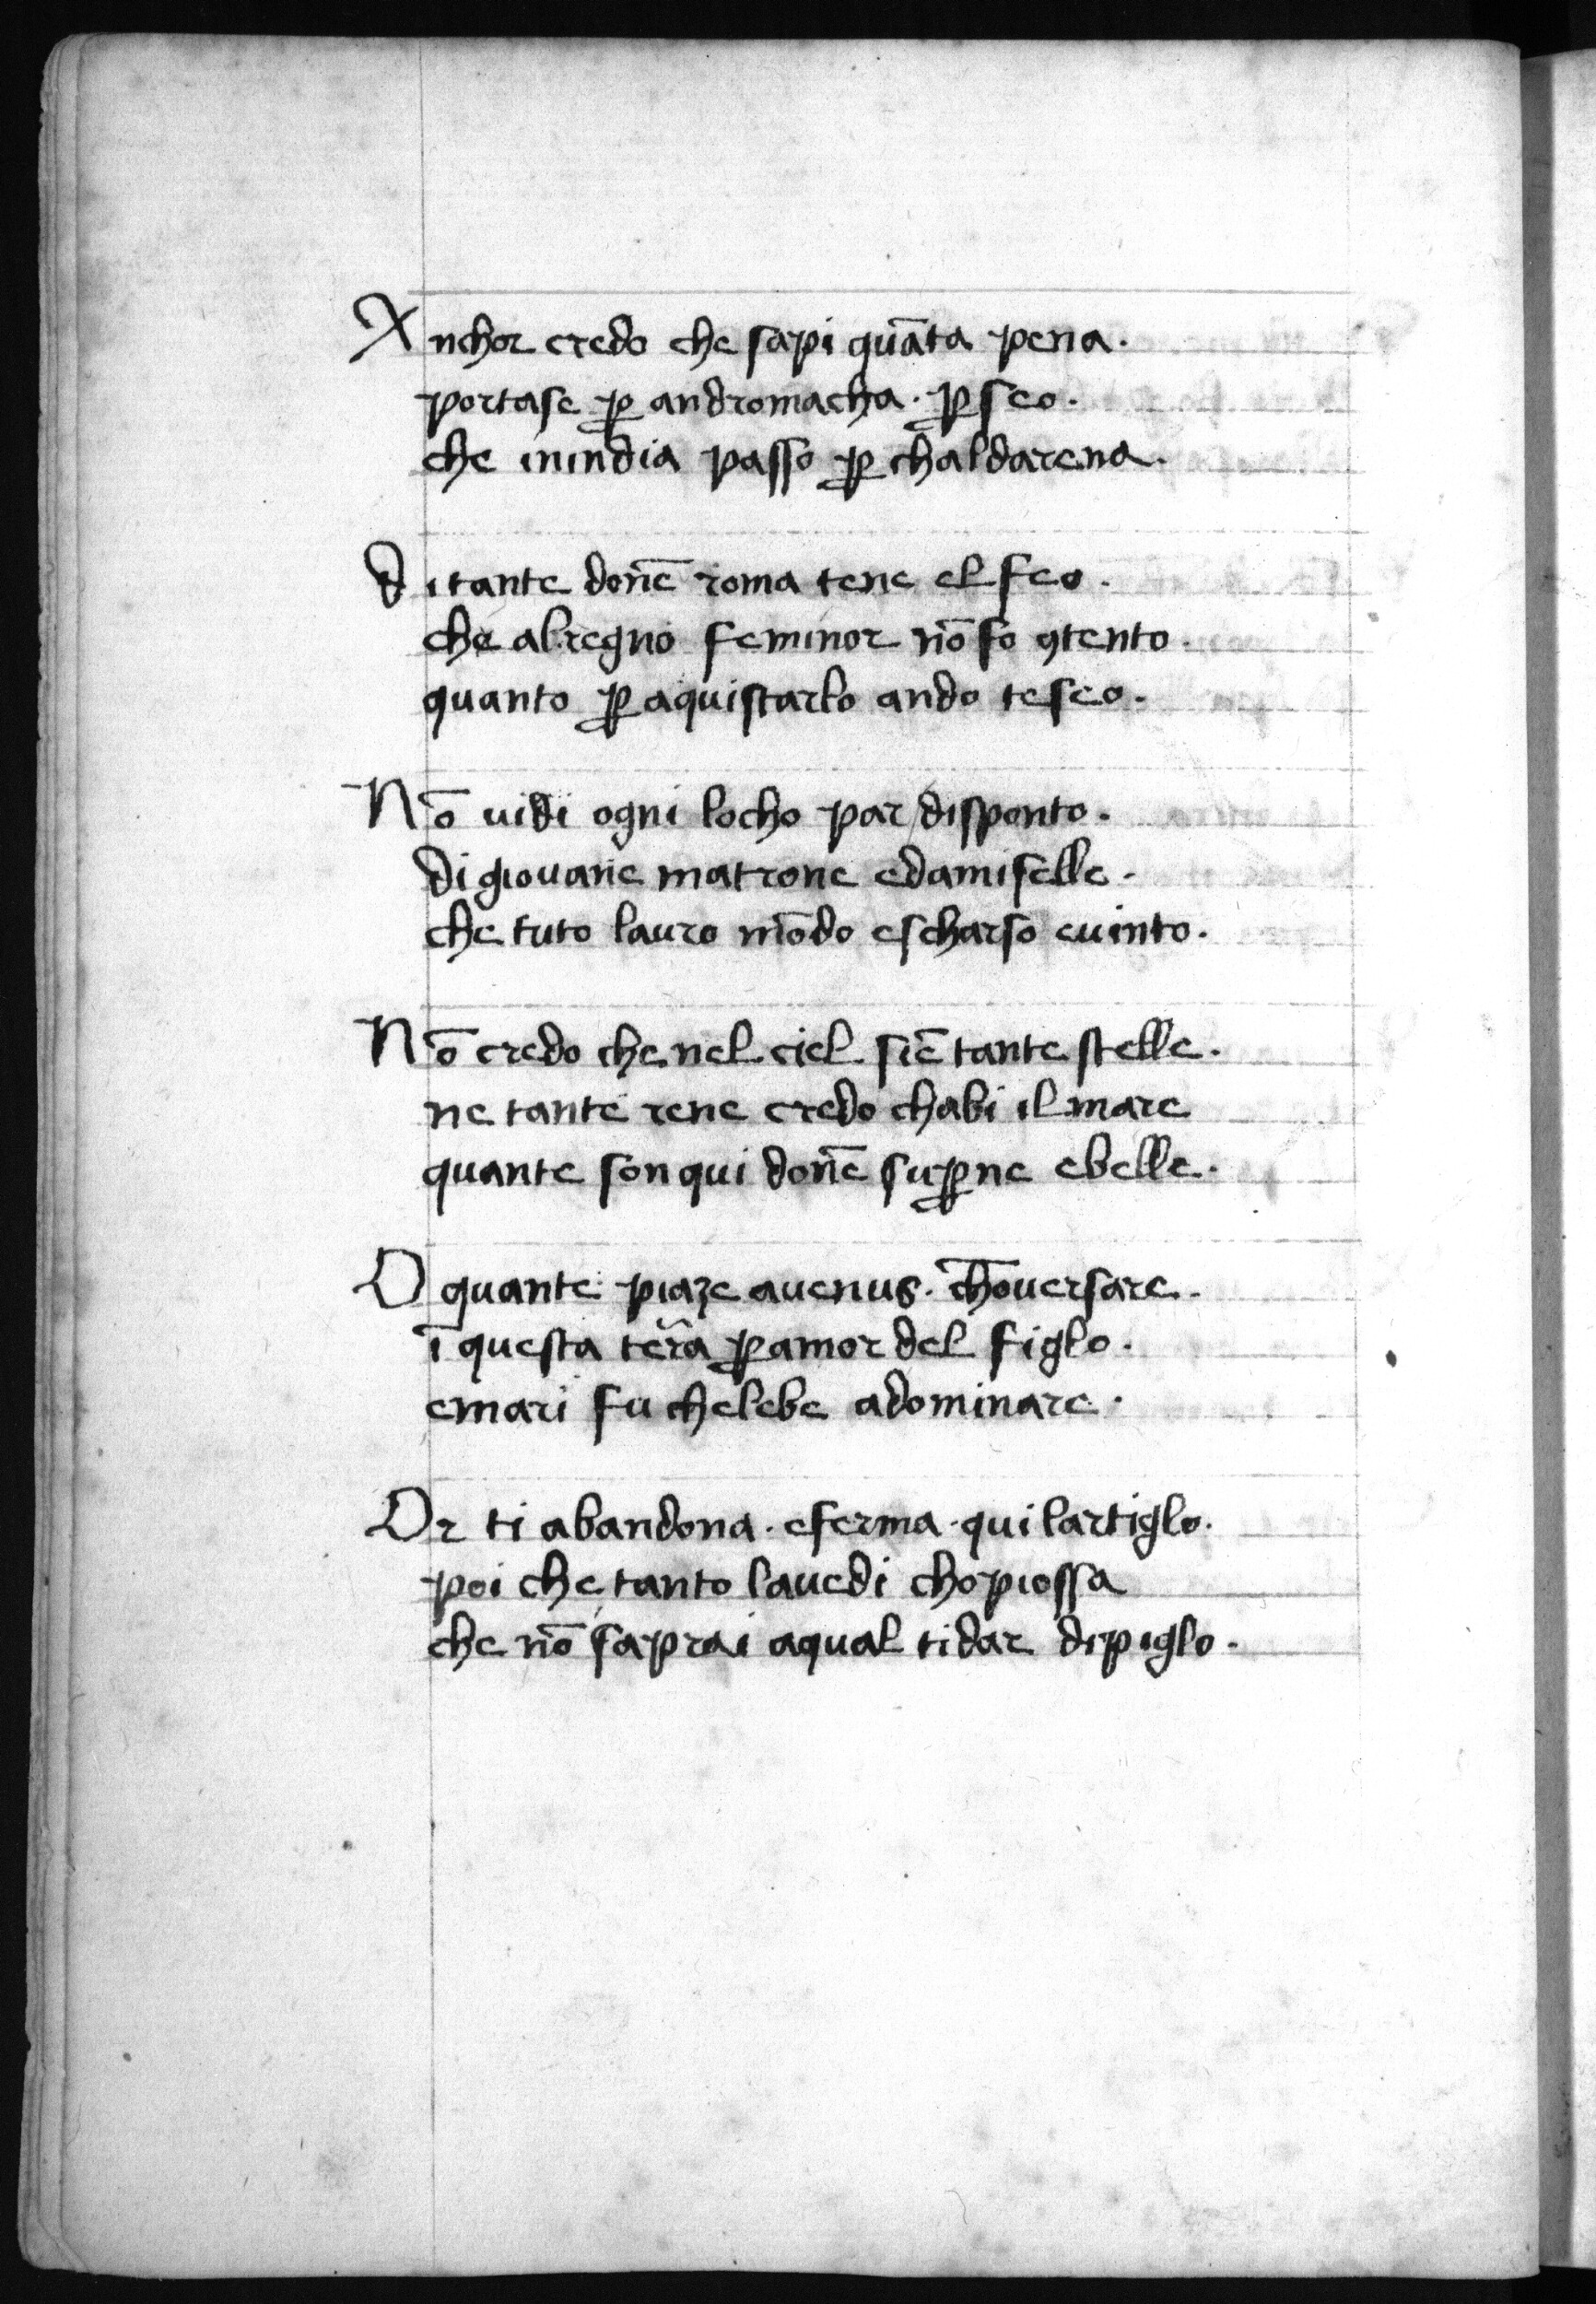 Anchor credo che sapi quāta pena.
portase ꝑ andromacha. ꝑseo.
che inindia passo ꝑ chaldarena.
di tante don̄e roma tene el feo.
che al regno feminor nō fo ꝯtento.
quanto ꝑ aquistarlo ando teseo.
Nō uidi ogni locho par disponto.
di giouane matrone edamiselle.
che tuto lauro mōdo escharso euinto.
Nō credo che nel ciel siē tante stelle.
ne tante rene credo chabi il mare
quante son qui don̄e suꝑne ebelle.
O quante piaze auenus. chōuersare.
ī questa tera ꝑ amor del figlo.
emari fu chelebe adominare.
Or ti abandona. eferma. qui lartiglo.
poi che tanto lauedi chopiossa
che nō saprai aqual tidar dipiglo.